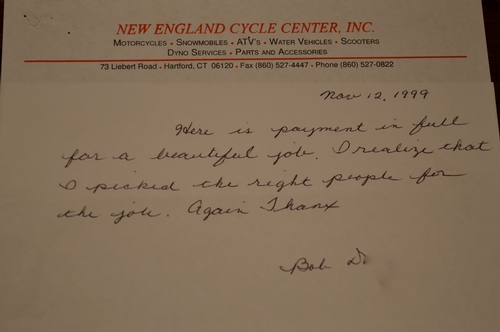 NEW ENGLAND CYCLE CENTER, INC.
MOTORCYCLES • SNOWMOBILES • ATV'S • WATER VEHICLES • SCOOTERS
DYNO SERVICES • PARTS AND ACCESSORIES
73 Liebert Road • Hartford, CT 06120 • Fax (860) 527-4447 • Phone (860) 527-0822
Nov 12, 1999
Here is payment in full
for a beautiful job. I realize that
I picked the right people for
the job. Again Thanx
Bob D